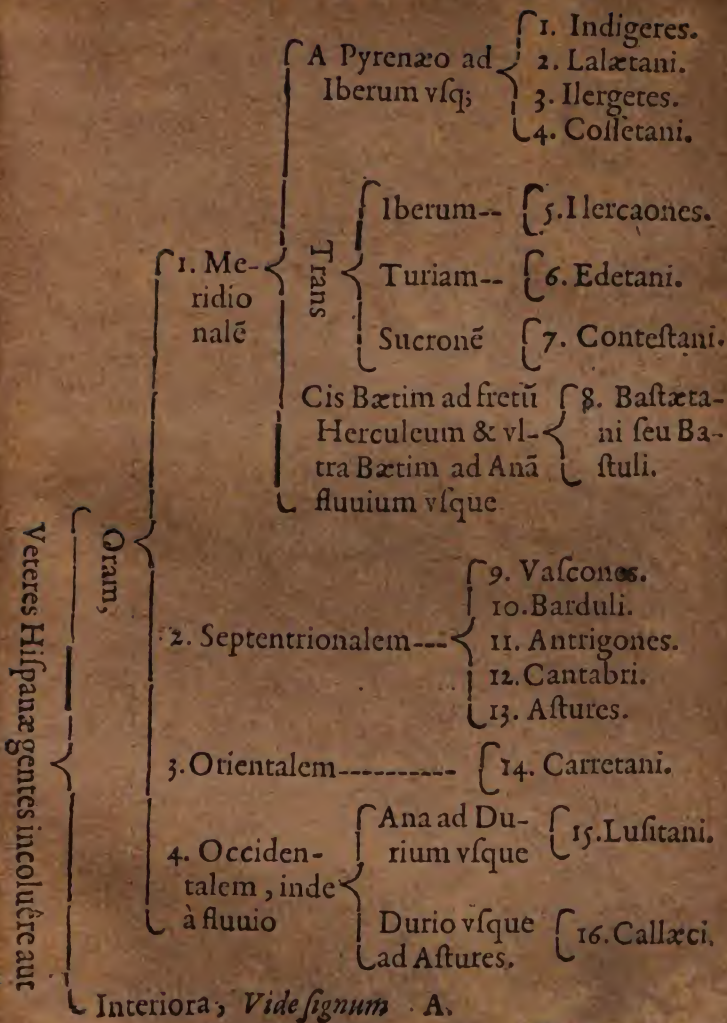 Veteres Hiſpanæ gentes incoluêre aut
Oram,
1. Me-
ridio
nalē
A Pyrenæo ad
Iberum vſq;
1. Indigeres.
2. Lalætani.
3. Ilergetes.
4. Coſſetani.
Trans
Iberum--
5. Ilercaones.
Turiam--
6. Edetani.
Sucronē
7. Conteſtani.
Cis Bætim ad fretū
Herculeum & vl-
tra Bætim ad Anā
fluuium vſque
8. Baſtæta-
ni ſeu Ba-
ſtuli.
2. Septentrionalem---
9. Vaſcones.
10. Barduli.
11. Antrigones.
12. Cantabri.
13. Aſtures.
3. Orientalem----------
14. Carretani.
4. Occiden-
talem, inde
à fluuio
Ana ad Du-
rium vſque
15. Luſitani.
Durio vſque
ad Aſtures.
16. Callæci.
Interiora, Vide ſignum A.